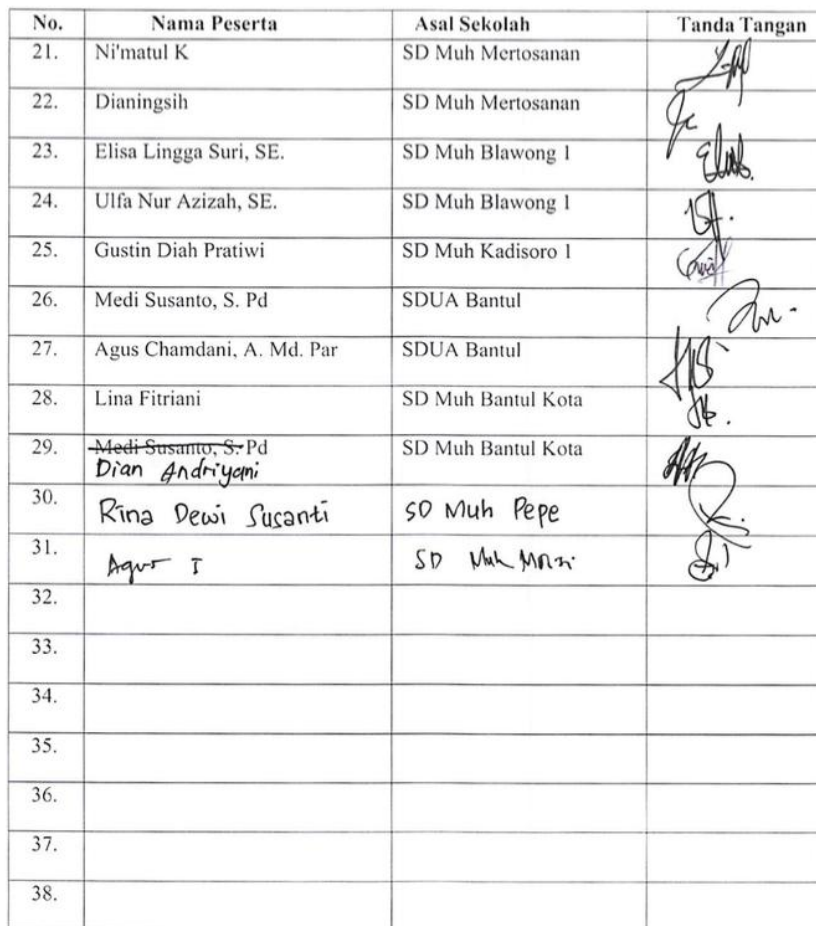 No. Nama Peserta Asal Sekolah Tanda Tangan
21. Ni'matul K SD Muh Mertosanan
22. Dianingsih SD Muh Mertosanan
23. Elisa Lingga Suri, SE. SD Muh Blawong 1
24. Ulfa Nur Azizah, SE. SD Muh Blawong 1
25. Gustin Diah Pratiwi SD Muh Kadisoro 1
26. Medi Susanto, S. Pd SDUA Bantul
27. Agus Chamdani, A. Md. Par SDUA Bantul
28. Lina Fitriani SD Muh Bantul Kota
29. Medi Susanto, S. Pd SD Muh Bantul Kota
Dian Andriyani
30. Rina Dewi Susanti SD Muh Pepe
31. Agus I SD Muh
32.
33.
34.
35.
36.
37.
38.